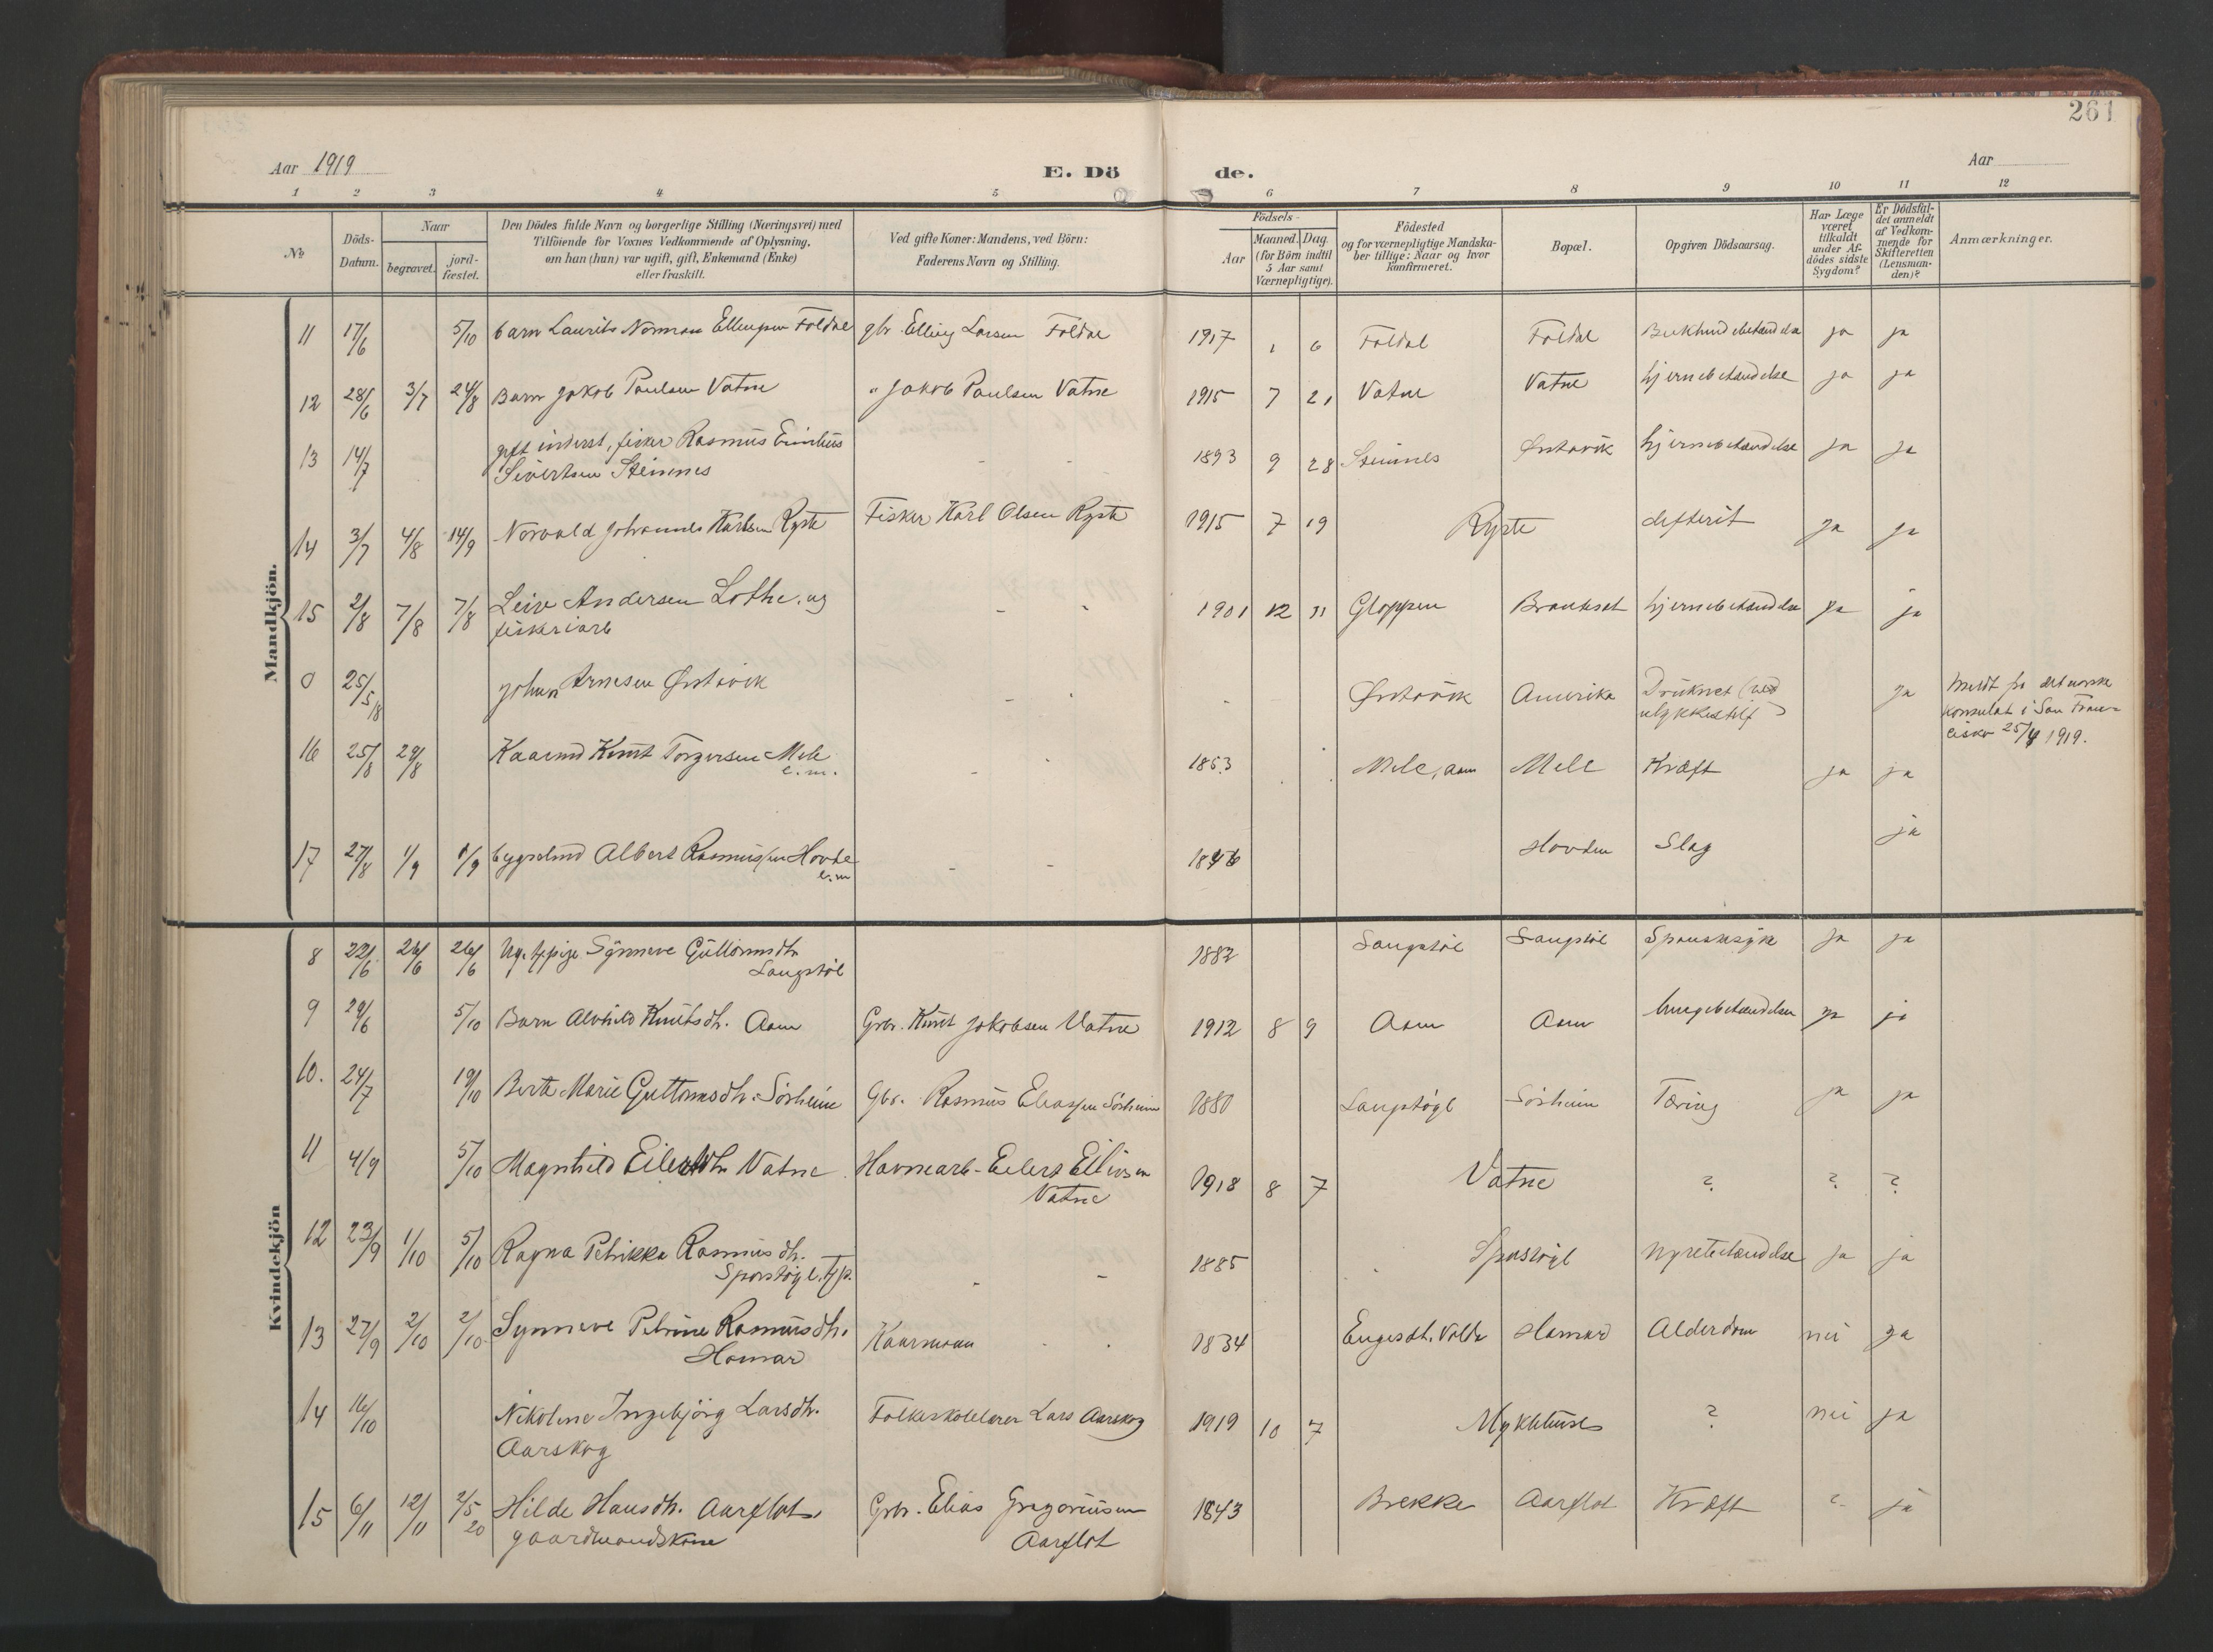 261
Aar 1919
E. Dö
de.
Aar
1 2 3 4 5 6 7 8 9 10 11 12
№
Döds-
Datum.
Naar
begravet.
jord-
fæstet.
Den Dödes fulde Navn og borgerlige Stilling (Næringsvei) med
Tilföiende for Voxnes Vedkommende af Oplysning,
om han (hun) var ugift, gift, Enkemand (Enke)
eller fraskilt.
Ved gifte Koner: Mandens, ved Börn:
Faderens Navn og Stilling.
Födsels-
Aar
Maaned. Dag.
(for Börn indtil
5 Aar samt
Værnepligtige).
Födested
og for værnepligtige Mandska-
ber tillige: Naar og hvor
konfirmeret.
Bopæl.
Opgiven Dödsaarsag.
Har Læge
været
tilkaldt
under Af-
dödes sidste
Sygdom?
Er Dödsfal-
det anmeldt
af Vedkom-
mende for
Skifteretten
(Lensman-
den)?
Anmærkninger.
Mandkjön.
11 17/6 5/10 barn Laurits Norman Ellingsen Foldal gbr. Elling Larsen Foldal 1917 1 6 Foldal Foldal ja ja
12 28/6 3/7 24/8 Barn Jakob Paulsen Vatne " Jakob Paulsen Vatne 1915 7 21 Vatne Vatne hjernebetændelse ja ja
13 14/7 gift inderst, fisker Rasmus
Sivertsen Steinnes - - 1893 9 28 Steinnes Ørstavik hjernebetændelse ja ja
14 3/7 4/8 14/9 Norvald Johannes Karlsen Ryste Fisker Karl Olsen Ryste 1915 7 19 Ryste defterit ja ja
15 2/8 7/8 7/8 Leiv Andersen Lothe, ug
fiskeriarb - - 1901 12 11 Gloppen hjernebetændelse ja ja
0 25/5 18 Johan Arnesen Ørstavik - - - Ørstavik Amerika Druknet (ved
ulykkestilf) ja meldt fra det norske
konsulat i San Fran-
cisko 25/4 1919.
16 25/8 29/8 Kaarmd Knut Torgersen Mele
e.m. - - 1853 Mele, Aam Mele Kræft ja ja
17 27/8 1/9 1/9 bygselmd Albert Rasmussen Hovde
e.m - 1846 Hovden Slag ja
Kvindekjön
8 22/6 26/6 26/6 Ug. tj.pige Synneve Guttormsdtr
Langstöl 1882 Langstöl Langstöl Spansksyke ja ja
9 29/6 5/10 Barn Alvhild Knutsdtr. Aam Grbr. Knut Jakobsen Vatne 1912 8 9 Aam Aam lungebetændelse ja ja
10. 24/7 19/10 Berte Marie Guttormsdtr. Sörheim Gbr. Rasmus Eliassen Sörheim 1880 Langstöyl Sörheim Tæring ja ja
11 4/9 5/10 Magnhild Eilertsdtr Vatne Havnearb. Eilert Eilivsen
Vatne 1918 8 7 Vatne ? ? ?
12 23/9 1/10 5/10 Ragna Petrikka Rasmusdtr.
Sporstöyl. tjp. - - 1885 Sporstöyl Nyrebetændelse ja ja
13 27/9 2/10 2/10 Synneve Petrine Rasmusdtr.
Hamar Kaarmann 1834 Engeset. Volda Alderdom nei ja
14 16/10 Nikoline Ingebjörg Larsdtr.
Aarskog Folkeskolelærer Lars Aarskog 1919 10 7 Myklebust ? nei ja
15 6/11 12/11 2/5 20 Hilde Hansdtr. Aarflot,
gaardmandskone Grbr. Elias Gregoriusen
Aarflot 1843 Brekke Aarflot Kræft ? ja